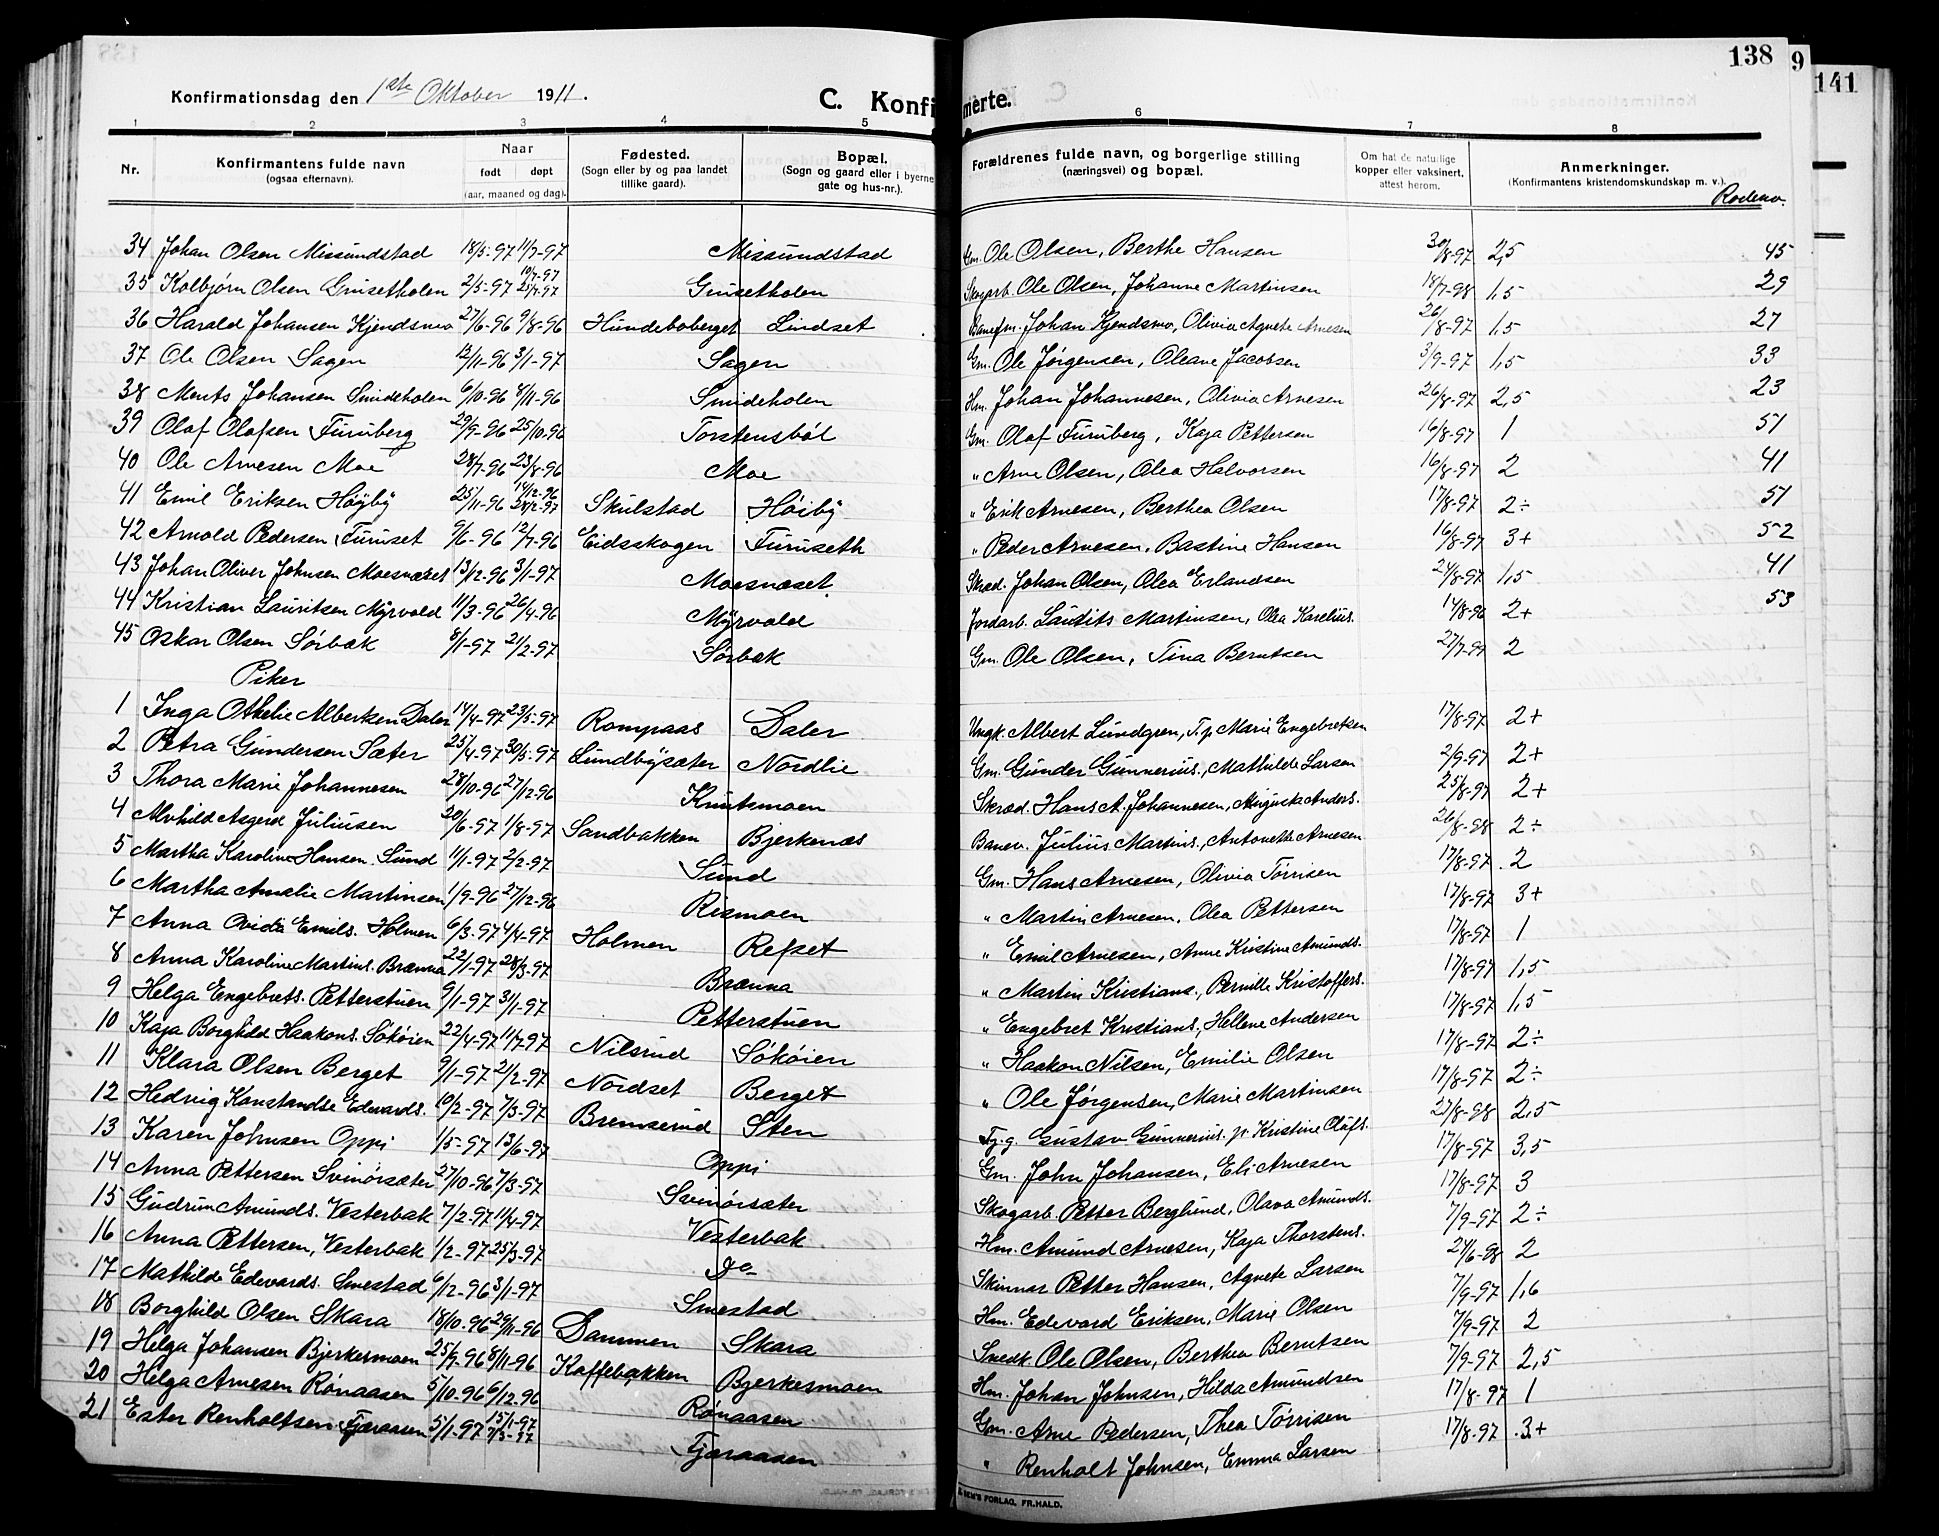 138 9 141
Konfirmationsdag den 1ste Oktober 1911. C. Konfi merte.
1 2 3 4 5 6 7 8
Nr. Konfirmantens fulde navn (ogsaa efternavn). Naar født døpt (aar, maaned og dag). Fødested. (Sogn eller by og paa landet tillike gaard). Bopæl. (Sogn og gaard eller i byerne gate og hus-nr.). Forældrenes fulde navn, og borgerlige stilling (næringsvei) og bopæl. Om hat de naturlige kopper eller vaksinert, attest herom. Anmerkninger. (Konfirmantens kristendomskundskap m. v.). Rodenr.
34 Johan Olsen Missundstad 18/5-97 11/7-97 Missundstad Gm. Ole Olsen, Berthe Hansen 30/8-97 2,5 45
35 Kolbjørn Olsen Gruisetholen 2/5-97 10/7-97 25/7-97 Gruisetholen Skogarb. Ole Olsen, Johanne Martinsen 18/7-98 1,5 29
36 Harald Johansen Kjendsmo 27/6-96 9/8-96 Hundeboberget Lindset Banefm. Johan Kjendsmo, Olivia Agnete Arnesen 26/8-97 1,5 27
37 Ole Olsen Sagen 12/11-96 3/1-97 Sagen Gm. Ole Jørgensen, Oleane Jacobsen 3/9-97 1,5 33
38 Ments Johansen Smideholen 6/10-96 8/11-96 Smideholen Hm. Johan Johannesen, Olivia Arnesen 26/8-97 2,5 23
39 Olaf Olafsen Furuberg 29/9-96 25/10-96 Torstensbøl Gm. Olaf Furuberg, Kaja Pettersen 16/8-97 1 51
40 Ole Arnesen Moe 28/7-96 23/8-96 Moe " Arne Olsen, Olea Halvorsen 16/8-97 2 41
41 Emil Eriksen Høyby 25/11-96 14/12-96 28/2-97 Skulstad Høiby " Erik Arnesen, Berthea Olsen 17/8-97 2÷ 51
42 Arnold Pedersen Furuset 9/6-96 12/7-96 Eidsskogen Furuseth " Peder Arnesen, Bastine Hansen 16/8-97 3+ 52
43 Johan Oliver Johnsen Moesnæset 13/12-96 3/1-97 Moesnæset Skræd. Johan Olsen, Olea Erlandsen 24/8-97 1,5 41
44 Kristian Lauritsen Myrvold 11/3-96 26/4-96 Myrvold Jordarb. Laurits Martinsen, Olea Karelius. 14/8-96 2+ 53
45 Oskar Olsen Sørbæk 8/1-97 21/2-97 Sørbæk Gm. Ole Olsen, Tina Berntsen 27/7-97 2
Piker
1 Inga Othelie Albertsen Daler 14/4-97 23/5-97 Rompaas Daler Ungk. Albert Lundgren, T.p. Marie Engebretsen 17/8-97 2+
2 Petra Gundersen Sæter 25/4-97 30/5-97 Lundbysæter Nordlie Gm. Gunder Gunnerius., Mathilde Larsen 2/9-97 2+
3 Thora Marie Johannesen 28/10-96 27/12-96 Knutsmoen Skræd. Hans A. Johannesen, Augusta Anders. 25/8-97 2+
4 Alvhild Asgerd Juliusen 20/6-97 1/8-97 Sandbakken Bjerkenæs Banev. Julius Martins., Antonette Arnesen 26/8-98 2÷
5 Martha Karoline Hansen Sund 11/1-97 2/2-97 Sund Gm. Hans Arnesen, Olivia Torrisen 17/8-97 2
6 Martha Amalie Martinsen 1/9-96 27/12-96 Rismoen " Martin Arnesen, Olea Pettersen 17/8-97 3+
7 Anna Ovidia Emils. Holmen 6/3-97 4/4-97 Holmen Refset " Emil Arnesen, Anne Kristine Amunds. 17/8-97 1
8 Anna Karoline Martins. Brænna 22/1-97 28/3-97 Brænna " Martin Kristians., Pernille Kristoffers. 17/8-97 1,5
9 Helga Engebrets. Petterstuen 9/1-97 31/1-97 Petterstuen " Engebret Kristians., Hellene Andersen 17/8-97 1,5
10 Kaja Borghild Haakons. Søkøien 22/4-97 11/7-97 Nilsrud Søkøien " Haakon Nilsen, Emilie Olsen 17/8-97 2÷
11 Klara Olsen Berget 9/1-97 2/2-97 Nordset Berget " Ole Jørgensen, Marie Martinsen 17/8-97 2÷
12 Hedvig Konstandse Edevards. 10/2-97 7/3-97 Bremserud Sten Tj.g. Gustav Gunnerius. p. Kristine Olafs. 23/8-98 2,5
13 Karen Johnsen Oppi 1/5-97 13/6-97 Oppi Gm. John Johansen, Eli Arnesen 17/8-97 3,5
14 Anna Pettersen Svinørsæter 27/10-96 7/3-97 Svinørsæter Skogarb. Petter Berglund, Olava Amunds. 17/8-97 3
15 Gudrun Amunds. Vesterbak 7/2-97 11/4-97 Vesterbak Hm. Amund Arnesen, Kaja Thorstens. 7/9-97 2÷
16 Anna Pettersen, Vesterbak 1/2-97 25/3-97 Do Skinnar Petter Hansen, Agnete Larsen 24/6-98 2
17 Mathilde Edevards. Smestad 6/12-96 3/1-97 Smestad Hm. Edevard Eriksen, Marie Olsen 7/9-97 1,6
18 Borghild Olsen Skara 18/10-96 29/11-96 Dammen Skara Snedk. Ole Olsen, Berthea Berntsen 7/9-97 2
19 Helga Johansen Bjerkesmoen 25/9-96 8/11-96 Kaffebakken Bjerkesmoen Hm. Johan Johnsen, Hilda Amundsen 7/9-97 2,5
20 Helga Arnesen Rønaasen 5/10-96 6/12-96 Rønaasen Gm. Arne Pedersen, Thea Tørrisen 17/8-97 1
21 Ester Renholtsen Fjæraasen 5/1-97 15/1-97 7/3-97 Fjæraasen " Renholt Johnsen, Emma Larsen 17/8-97 3+
FORLAG, FR.HALD.